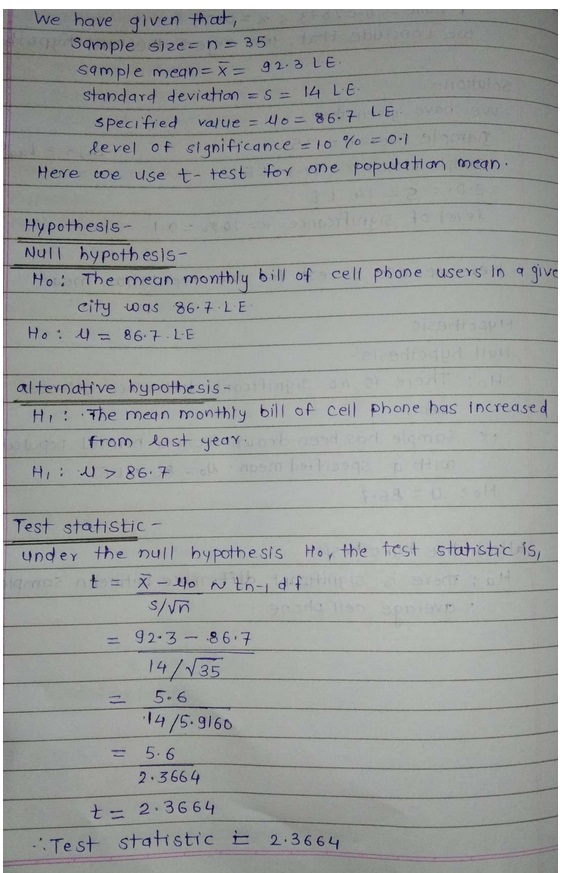 We have given that,
Sample size = n = 35
sample mean = x̄ = 92.3 L.E.
standard deviation = s = 14 L.E.
specified value = μ0 = 86.7 L.E
level of significance = 10 % = 0.1
Here we use t-test for one population mean.
Hypothesis -
Null hypothesis -
H0 : The mean monthly bill of cell phone users in a give
city was 86.7 L.E
H0 : μ = 86.7 L.E
alternative hypothesis -
H1 : The mean monthly bill of cell phone has increased
from last year.
H1 : μ > 86.7
Test statistic -
under the null hypothesis H0, the test statistic is,
t = x̄ - μ0 ~ tn-1 d.f
s/√n
= 92.3 - 86.7
14/√35
= 5.6
14/5.9160
= 5.6
2.3664
t = 2.3664
∴ Test statistic t = 2.3664